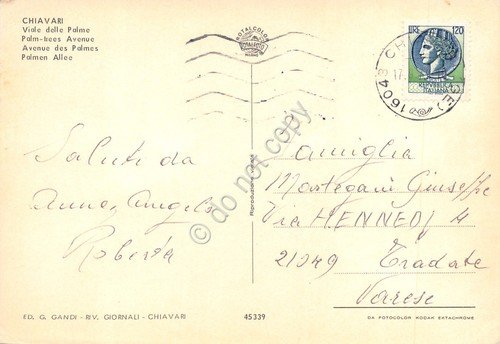 CHIAVARI
Viale delle Palme
Palm-trees Avenue
Avenue des Palmes
Palmen Allee
LIRE 120
REPUBBLICA
ITALIANA
16043
17.
do not copy
Saluti da
Anna Angelo
Roberta
Famiglia
Montegani Giuseppe
Via HENNEDJ 4
21049 Tradate
Varese
ED. G. GANDI - RIV. GIORNALI - CHIAVARI
45339
DA FOTOCOLOR KODAK EKTACHROME